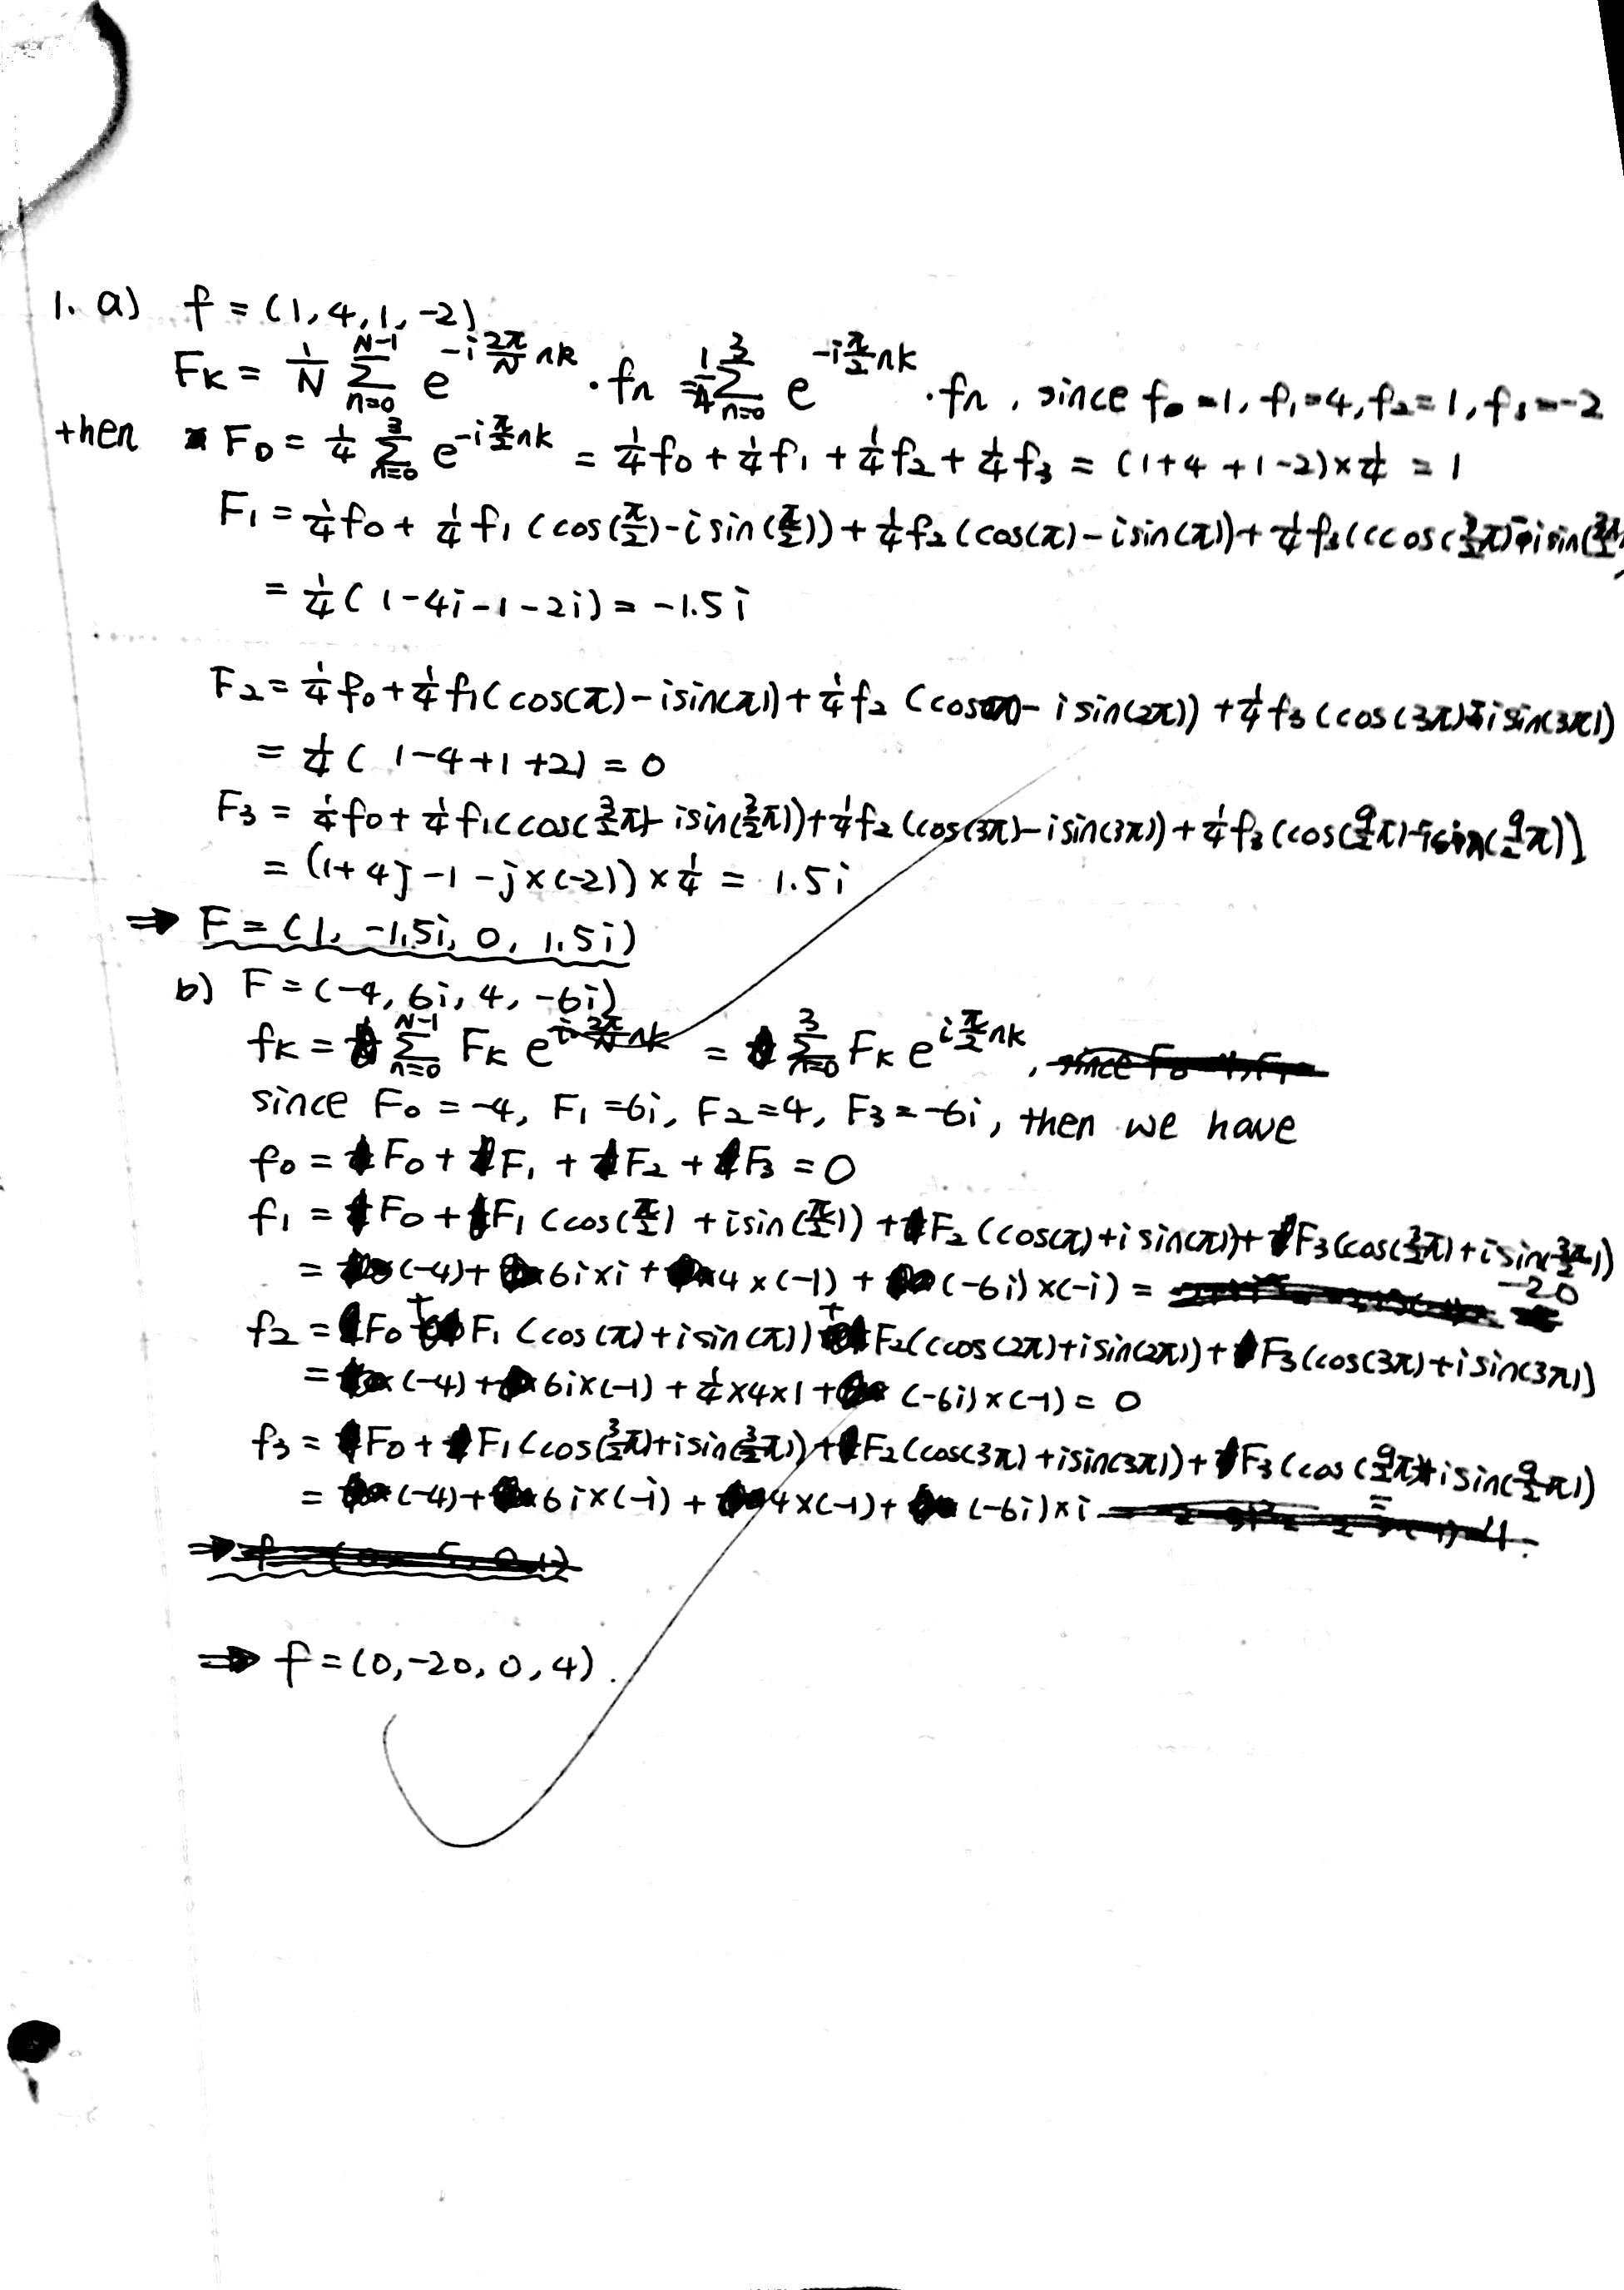 1. a) f = (1, 4, 1, -2)
F_K = 1/N Σ_{n=0}^{N-1} e^{-i 2π/N nk} · fn = 1/4 Σ_{n=0}^{3} e^{-i π/2 nk} · fn, since f0 = 1, f1 = 4, f2 = 1, f3 = -2
then F0 = 1/4 Σ_{n=0}^{3} e^{-i π/2 nk} = 1/4 f0 + 1/4 f1 + 1/4 f2 + 1/4 f3 = (1+4+1-2) × 1/4 = 1
F1 = 1/4 f0 + 1/4 f1 (cos(π/2) - i sin(π/2)) + 1/4 f2 (cos(π) - i sin(π)) + 1/4 f3 ((cos(3/2 π) - i sin(3/2 π
= 1/4 (1 - 4i - 1 - 2i) = -1.5i
F2 = 1/4 f0 + 1/4 f1 (cos(π) - i sin(π)) + 1/4 f2 (cos - i sin(2π)) + 1/4 f3 (cos(3π) - i sin(3π))
= 1/4 (1 - 4 + 1 + 2) = 0
F3 = 1/4 f0 + 1/4 f1 (cos(3/2 π) - i sin(3/2 π)) + 1/4 f2 (cos(3π) - i sin(3π)) + 1/4 f3 (cos(9/2 π) - i sin(9/2 π))
= (1 + 4j - 1 - j × (-2)) × 1/4 = 1.5i
⇒ F = (1, -1.5i, 0, 1.5i)
b) F = (-4, 6i, 4, -6i)
fK = Σ_{n=0}^{N-1} FK e^{i 2π/N nk} = Σ_{n=0}^{3} FK e^{i π/2 nk},
since F0 = -4, F1 = 6i, F2 = 4, F3 = -6i, then we have
f0 = F0 + F1 + F2 + F3 = 0
f1 = F0 + F1 (cos(π/2) + i sin(π/2)) + F2 (cos(π) + i sin(π)) + F3 (cos(3/2 π) + i sin(3/2 π))
= (-4) + 6i × i + 4 × (-1) + (-6i) × (-i) = -20
f2 = F0 + F1 (cos(π) + i sin(π)) + F2 (cos(2π) + i sin(2π)) + F3 (cos(3π) + i sin(3π))
= (-4) + 6i × (-1) + 1/4 × 4 × 1 + (-6i) × (-1) = 0
f3 = F0 + F1 (cos(3/2 π) + i sin(3/2 π)) + F2 (cos(3π) + i sin(3π)) + F3 (cos(9/2 π) + i sin(9/2 π))
= (-4) + 6i × (-i) + 4 × (-1) + (-6i) × i = 4.
⇒ f = (0, -20, 0, 4).